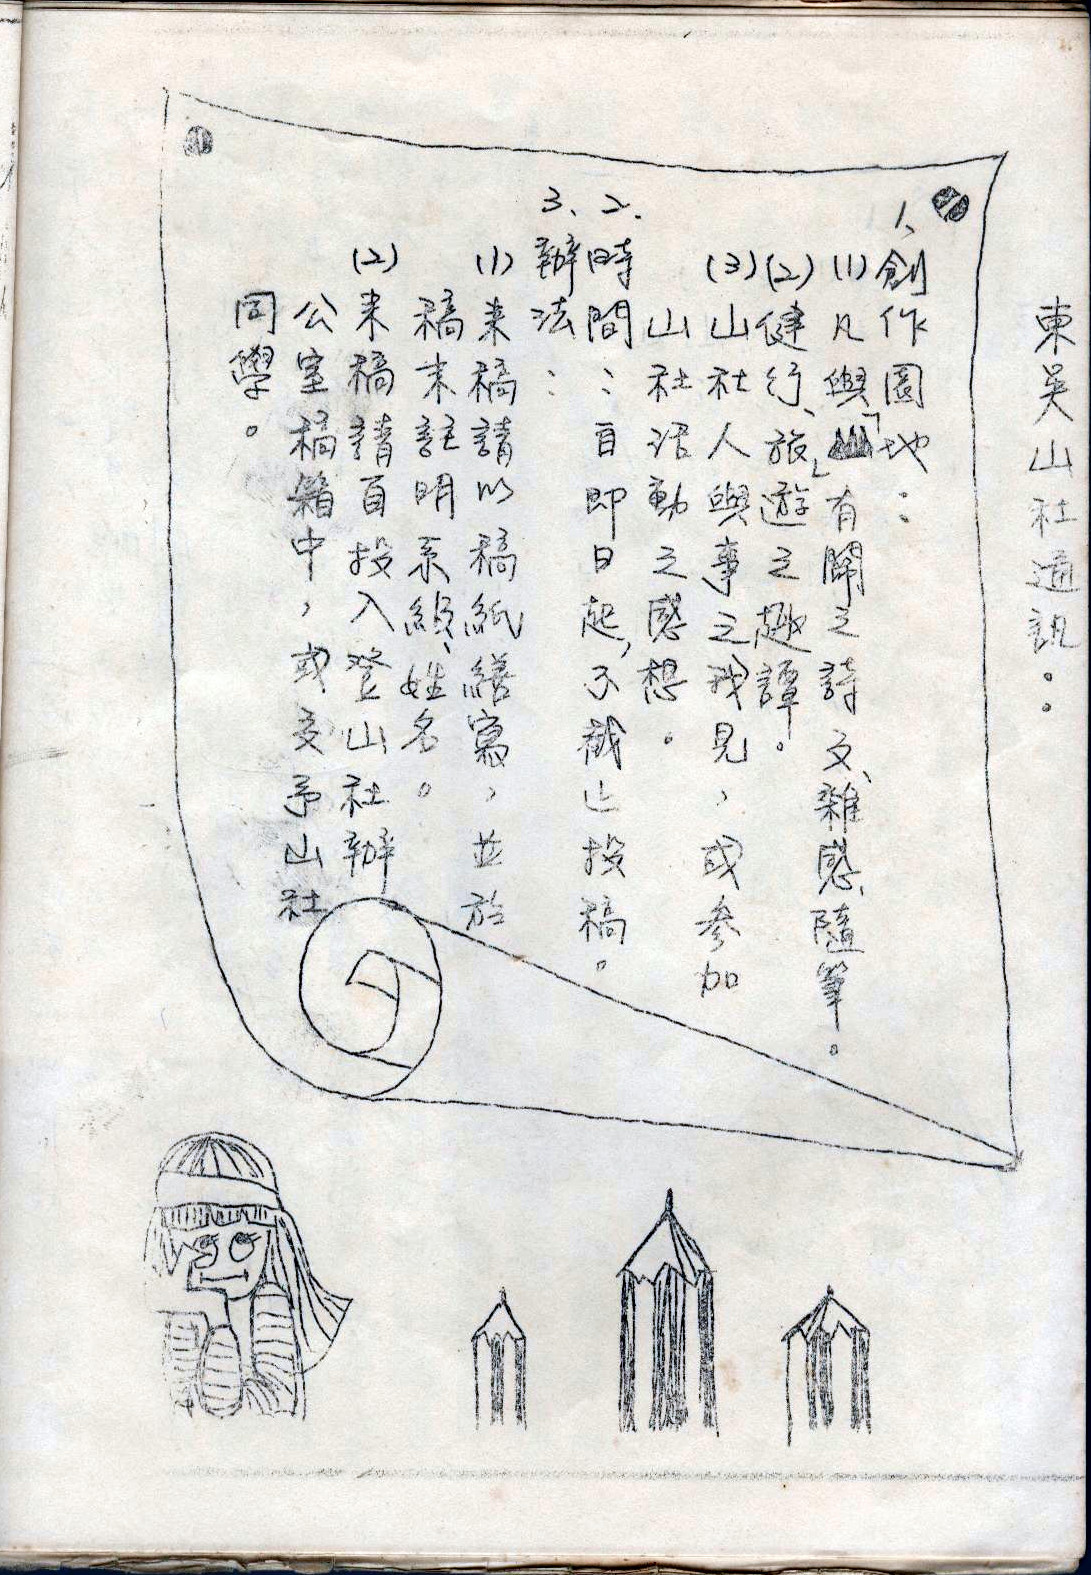 東吳山社通訊：
1、創作園地：
(1)凡與「山」有關之詩文、雜感、隨筆。
(2)健行、旅遊之趣譚。
(3)山社人與事之我見，或參加
山社活動之感想。
2.時間：自即日起，不截止投稿。
3、辦法：
(1)來稿請以稿紙繕寫，並於
稿末註明系級、姓名。
(2)來稿請自投入登山社辦
公室稿箱中，或交予山社
同學。